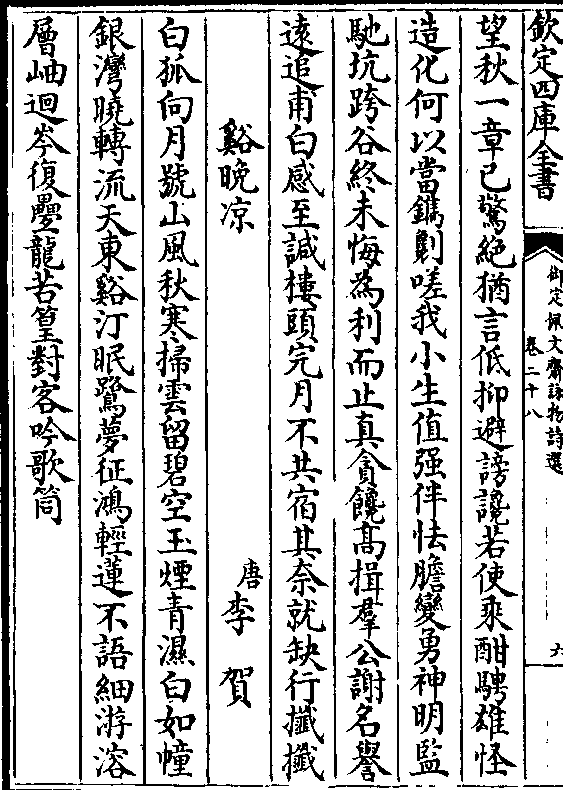 欽定四庫全書
御定佩文齋詠物詩選
卷二十八
六
望秋一章已驚絶猶言低抑避謗讒若使乘酣騁雄怪
造化何以當鐫劖嗟我小生值强伴怯膽變勇神明監
馳坑跨谷終未悔為利而止真貪饞髙揖羣公謝名譽
遠追甫白感至諴樓頭完月不共宿其奈就缺行攕攕
谿晚凉
唐李賀
白狐向月號山風秋寒掃雲留碧空玉煙青濕白如幢
銀灣曉轉流天東谿汀眠鷺夢征鴻輕蓮不語細游溶
層岫迴岑復疊龍苦篁對客吟歌筒